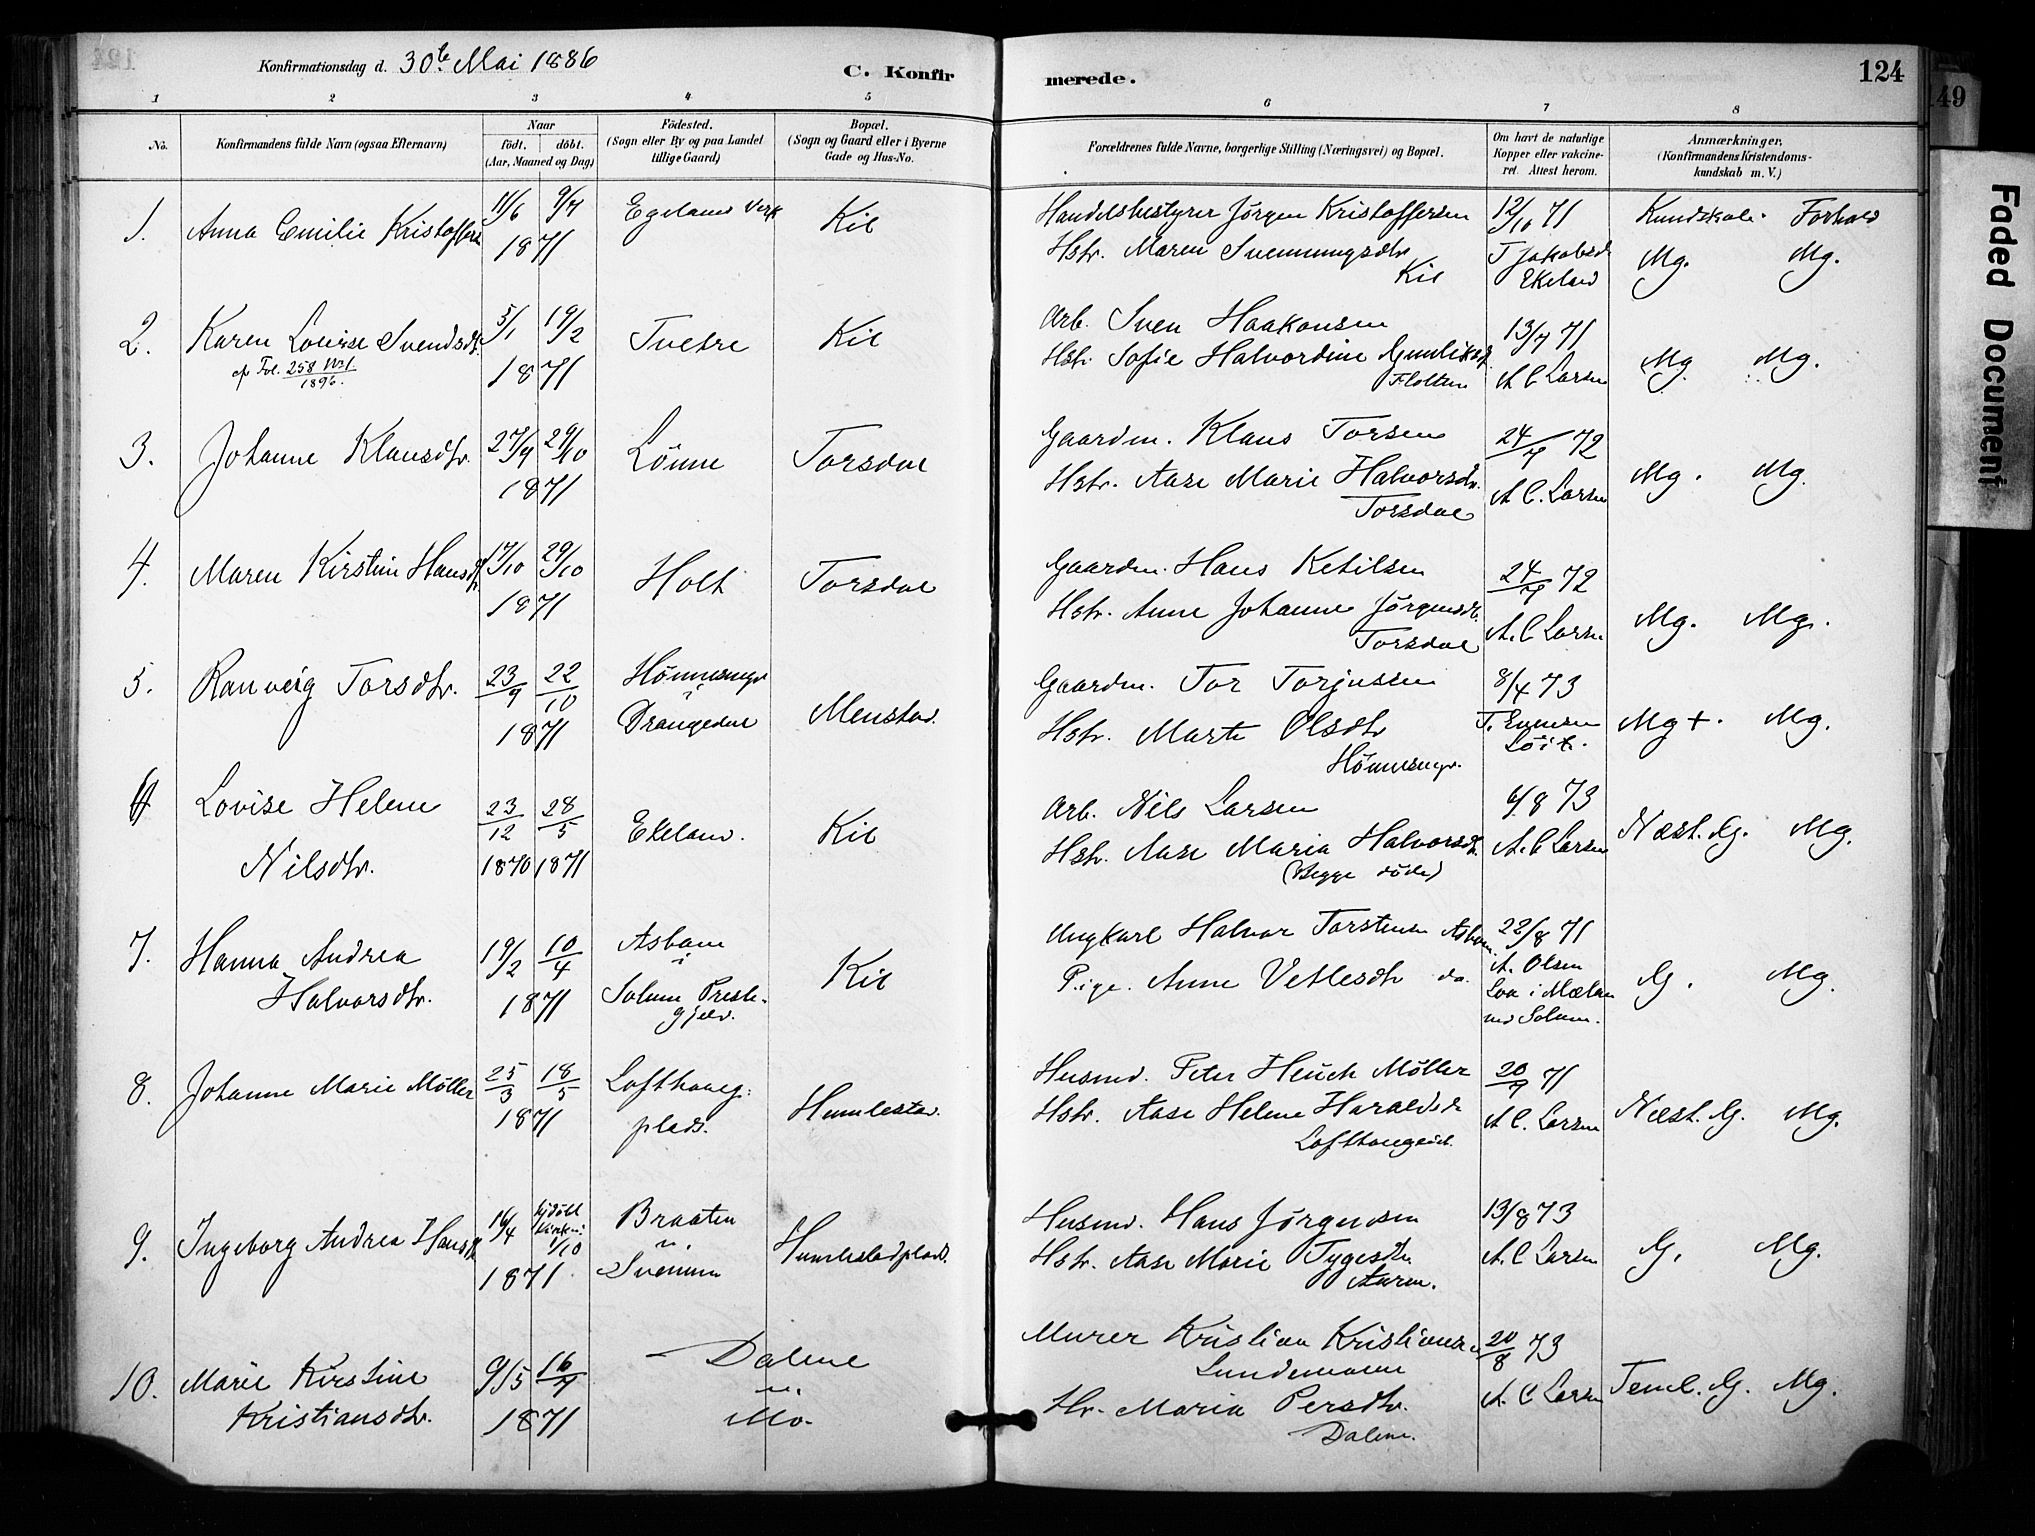 Konfirmationsdag d. 30te Mai 1886
C. Konfir
merede.
124
1 2 3 4 5 6 7 8
No.
Konfirmandens fulde Navn (ogsaa Efternavn)
Naar
födt. döbt.
(Aar, Maaned og Dag)
Födested.
(Sogn eller By og paa Landet
tillige Gaard)
Bopæl.
(Sogn og Gaard eller i Byerne
Gade og Hus-No.
Forældrenes fulde Navne, borgerlige Stilling (Næringsvei) og Bopæl.
Om havt de naturlige
Kopper eller vakcine-
ret. Attest herom.
Anmærkninger.
(Konfirmandens Kristendoms-
kundskab m. V.)
1. Anna Emilie Kristoffers 11/6 9/7 Egelands Verk Kil
1871
Handelsbestyrer Jørgen Kristoffersen 12/10 71 Kundskab. Forhold
Hstr. Maren Svennungsdtr T Jakobsd
Kil Ekeland Mg. Mg.
2. Karen Louise Svendsdtr. 5/1 19/2 Tvetre Kil
Fol. 258 No 1
1896. 1871
Arb. Sven Haakonsen 13/7 71
Hstr. Sofie Halvordine Gunliksd. Mg. Mg.
A C Larsen
3. Johanne Klausdtr. 27/9 29/10 Lönne Torsdal
1871
Gaardm. Klaus Torsen 24/7 72
Hstr. Aase Marie Halvorsdtr. A C. Larsen Mg. Mg.
Torsdal
4. Maren Kirstine Hansdtr 17/10 29/10 Holt Torsdal
1871
Gaardm. Hans Ketilsen 24/7 72
Hstr. Anne Johanne Jørgensdtr. A. C Larsen Mg. Mg.
Torsdal
5. Ranveig Torsdtr. 23/9 22/10 Hönnesmyr
i
Drangedal Menstad.
1871
Gaardm. Tor Torjussen 8/4 73
Hstr. Marte Olsdtr Mg+. Mg.
Hönnesmyr.
6 Lovise Helene 23/12 28/5 Ekeland. Kil
Nilsdtr. 1870 1871
Arb. Nils Larsen 6/8 73
Hstr. Aase Maria Halvorsdtr. A. C Larsen Næst. G. Mg.
(Begge döde)
7. Hanna Andrea 19/2 10/4 Asbam
Halvorsdtr. 1871 i
Solum Preste-
gjeld. Kil
Ungkarl Halvor Torstensen 22/8 71
Pige. Anne Vetlesdtr do. A. Olsen
G. Mg.
ved Solum.
8. Johanne Marie Möller 25/3 18/5 Lofthaug-
1871 plads. Humlestad.
Husmd. Peter Heuch Möller 20/9 71
Hstr. Aase Helene Haraldsdtr A C. Larsen Næst. G. Mg.
9. Ingeborg Andrea Hansdtr 16/4 hjdöbt
1/10 Braaten
i
1871. Humlestadplads.
Husmd. Hans Jörgensen 13/8 73
Hstr. Aase Marie Tygesdtr. A. C Larsen G. Mg.
10. Marie Kirstine 9/5 16/7 Dalene
Kristiansdtr. 1871 i
Mo.
Murer Kristian Kristiansen 20/8 73
Lundemoen
Hr. Maria Persdtr. A. C Larsen Teml. G. Mg.
Dalene.
49
Faded Document